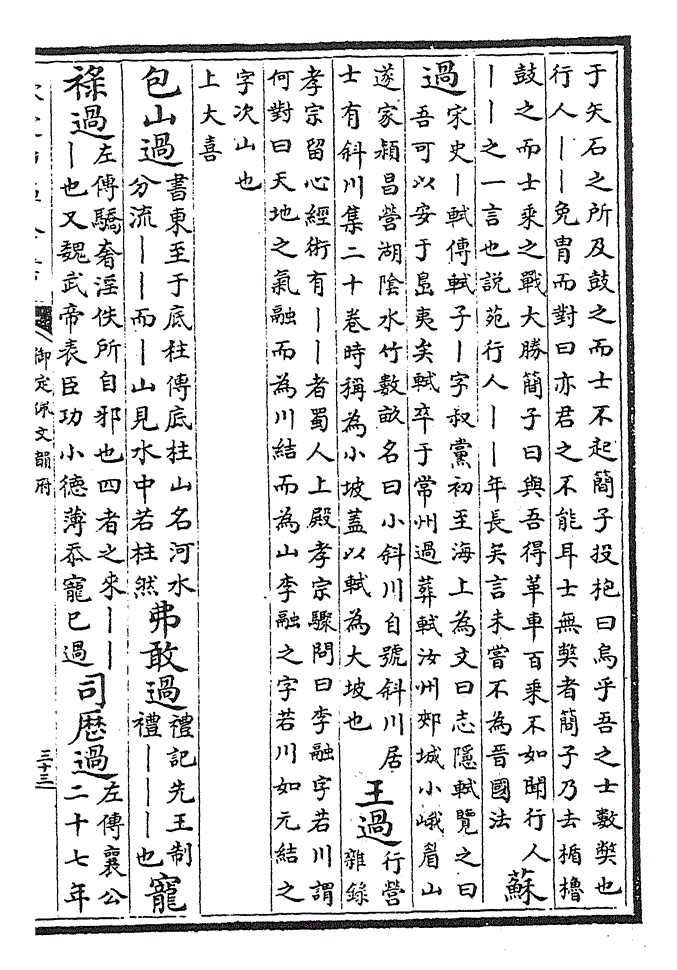 于矢石之所及鼓之而士不起簡子投枹曰烏乎吾之士數獘也
行人丨丨免胄而對曰亦君之不能耳士無獘者簡子乃去楯櫓
鼓之而士乘之戰大勝簡子曰與吾得革車百乘不如聞行人
丨丨之一言也説苑行人丨丨年長矣言未嘗不為晉國法
蘇
過
宋史丨軾傳軾子丨字叔黨初至海上為文曰志隱軾覽之曰
吾可以安于島夷矣軾卒于常州過葬軾汝州郟城小峨眉山
遂家潁昌營湖陰水竹數畝名曰小斜川自號斜川居
士有斜川集二十卷時稱為小坡蓋以軾為大坡也
王過
行營
雜錄
孝宗留心經術有丨丨者蜀人上殿孝宗驟問曰李融字若川謂
何對曰天地之氣融而為川結而為山李融之字若川如元結之
字次山也
上大喜
包山過
書東至于底柱傳底柱山名河水
分流丨丨而丨山見水中若柱然
弗敢過
禮記先王制
禮丨丨丨也
寵
祿過
左傳驕奢淫佚所自邪也四者之來丨丨
丨也又魏武帝表臣功小德薄忝寵已過
司厯過
左傳襄公
二十七年
御定佩文韻府
三十三